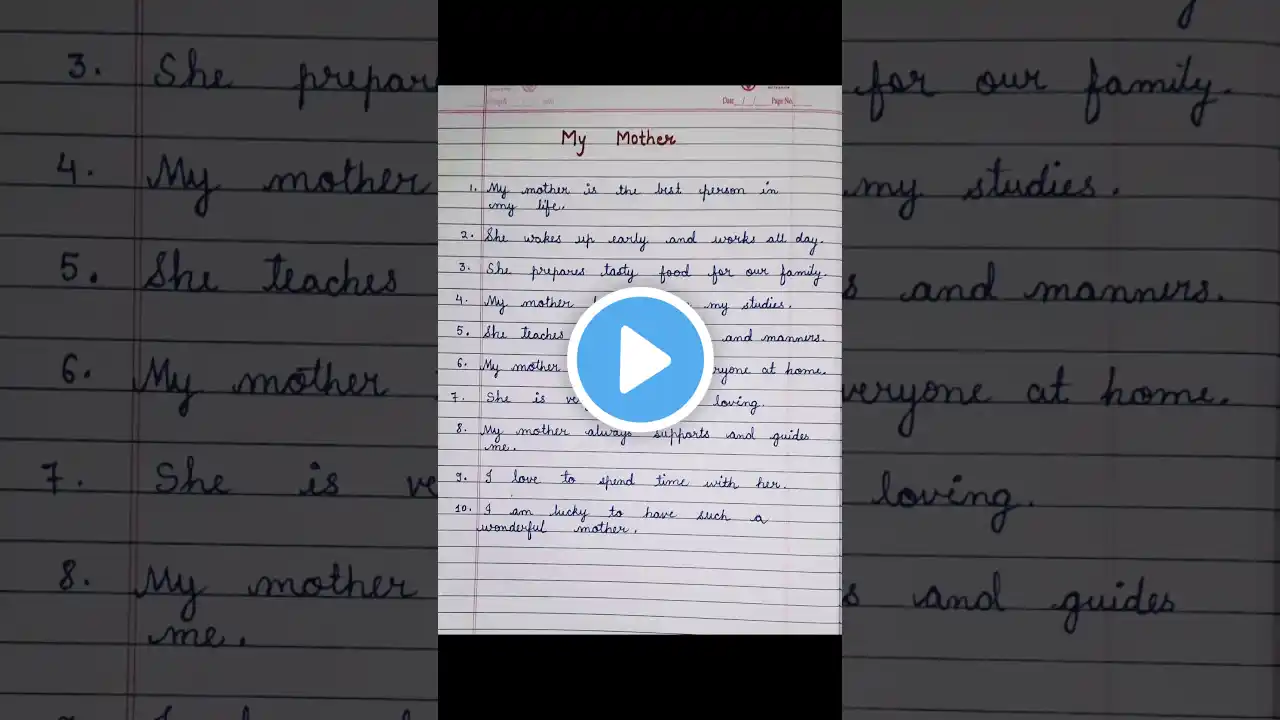 3. She prepar
4. My mother
5. She teaches
6. My mother
7. She is ve
8. My mother
me.
Date / / Page No.
My Mother
1. My mother is the best person in
my life.
2. She wakes up early and works all day.
3. She prepares tasty food for our family.
4. My mother my studies.
5. She teaches and manners.
6. My mother ryone at home.
7. She is ve loving.
8. My mother always supports and guides
me.
9. I love to spend time with her.
10. I am lucky to have such a
wonderful mother.
for our family.
my studies.
s and manners.
veryone at home.
loving.
s and guides